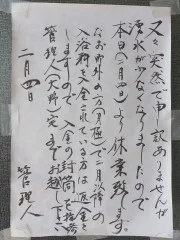 又々突然で申訳ありませんが
湧水が少なくなりましたので
本日(二月四日)より休業致します。
なお町外の方(月極)で二月以降の
入浴料を入金されている方は返金を
しますので 入金の封筒を持参
管理人(大野宅)までお越し下さい
二月四日
管理人